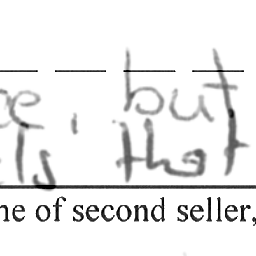 but
that
ne of second seller,